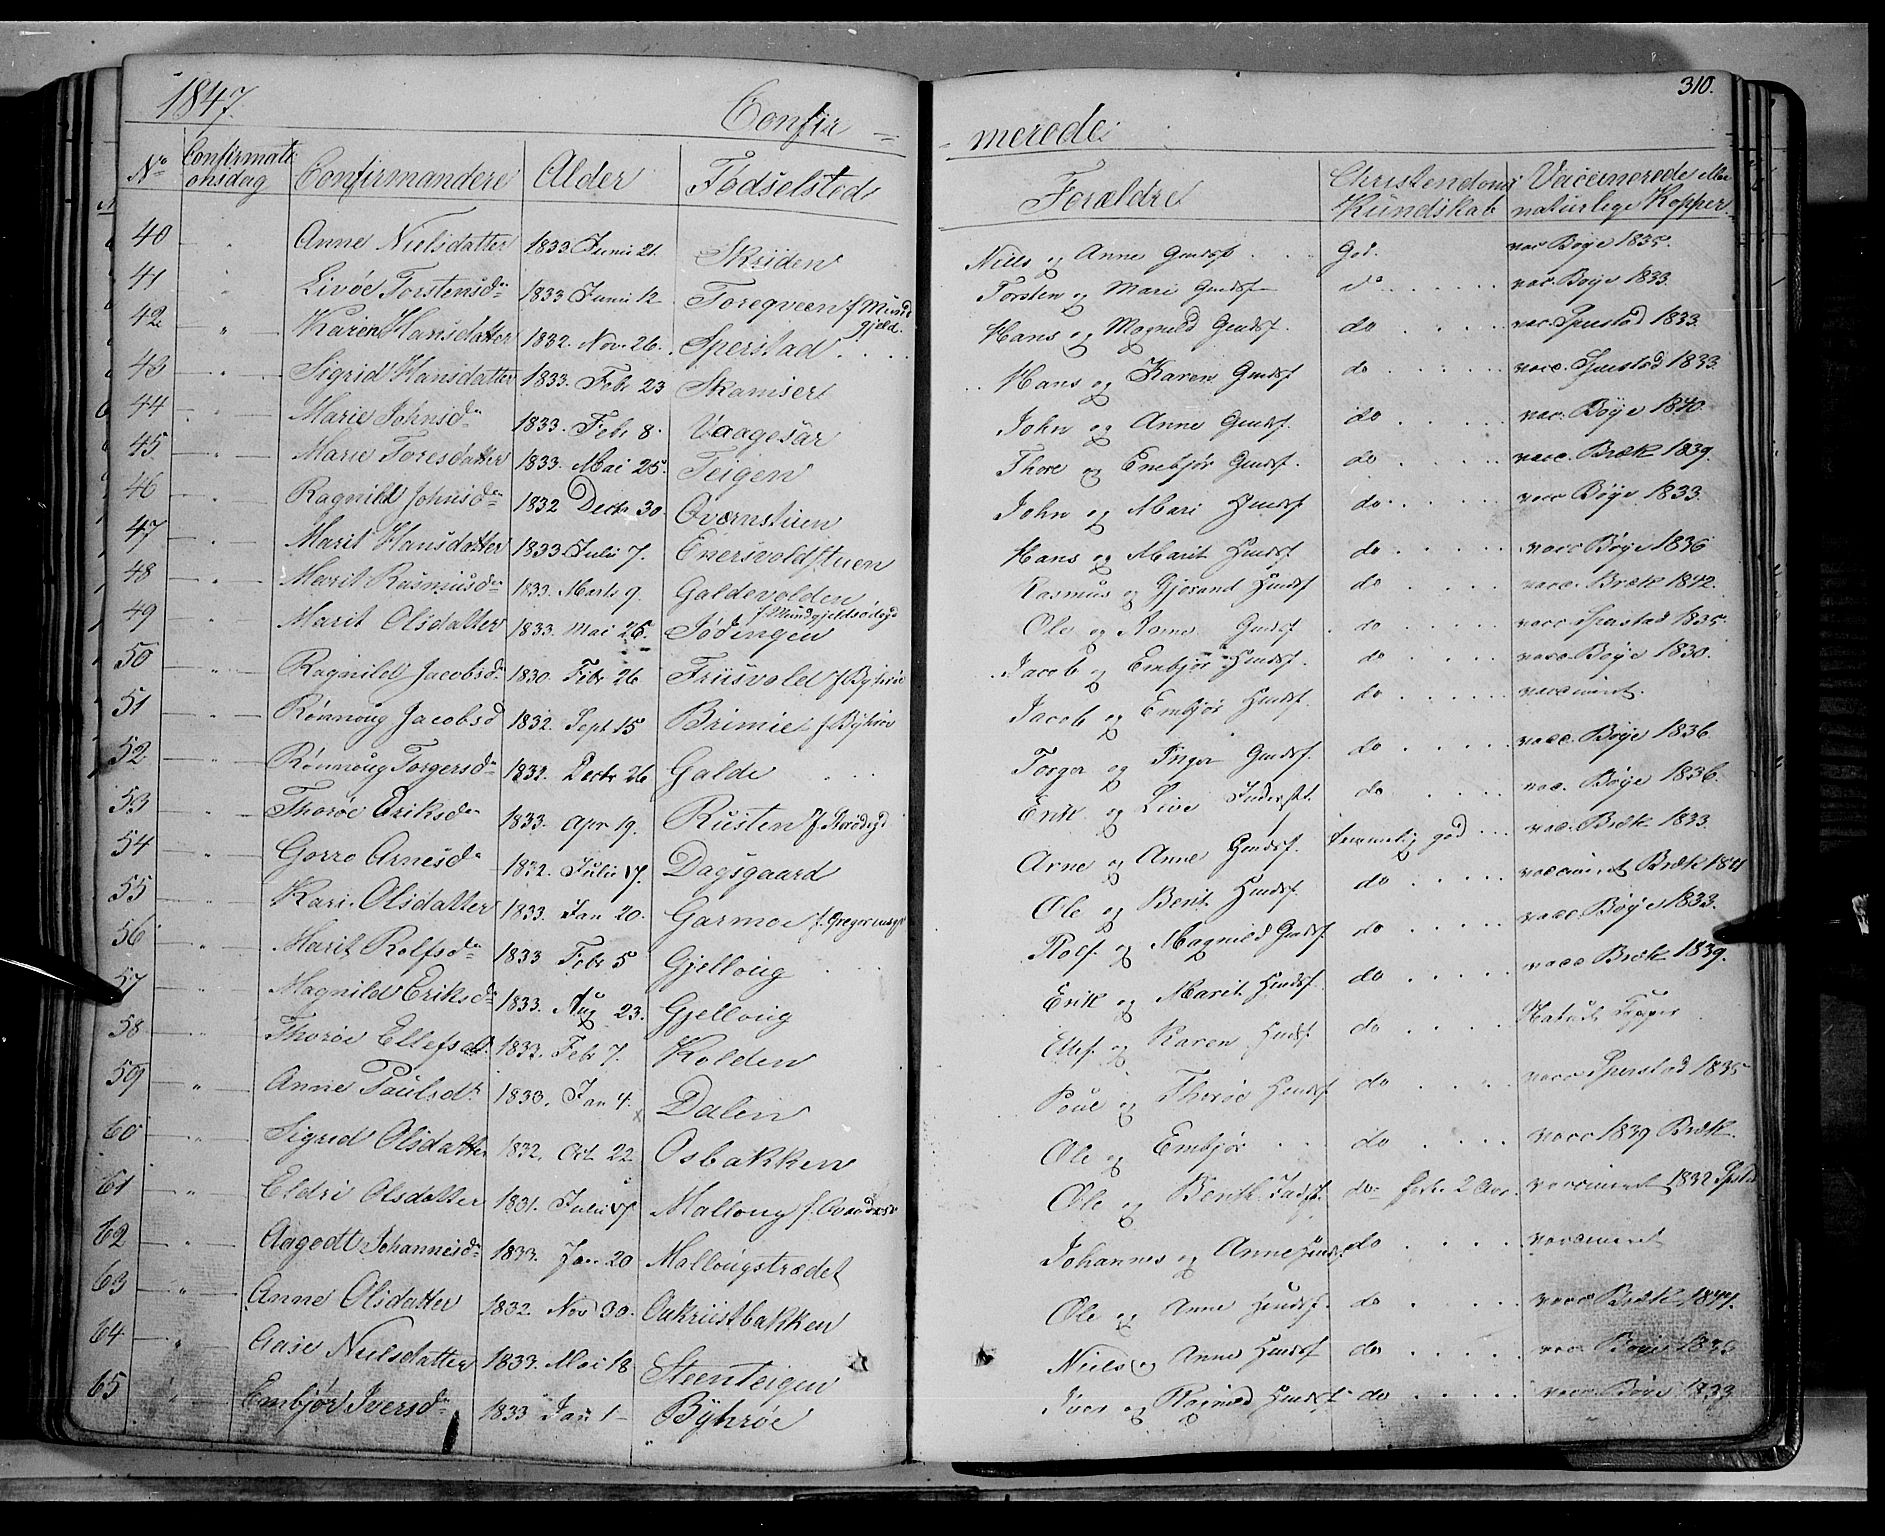 1847.
Confir =
= merede.
310.
No Confirmati onsdag Confirmandere Alder Fødselsted Forældre Christendoms Kundskab Vaccinerede eller naturlige Kopper.
40 " Anne Nielsdatter 1833 Junii 21. Skriden Niels og Anne Gmdsf . . God. vac Bøye 1835.
41 " Livøe Torstensdr 1833 Junii 12 Toregveen f Mund gjæld. Torsten og Mari Gmdsf do vac. Bøye 1833.
42 " Karen Hansdatter 1832. Nov. 26. Sperstad . . . . Hans og Magnild Gmdsf. do vac. Sperstad 1833.
43 " Sigrid Hansdatter 1833. Febr 23 Skamser Hans og Karen Gmdsf do vacc. Sperstad 1833.
44 " Marie Johnsdr 1833. Febr 8. Vaagesar John og Anne Gmdsf. do vac. Bøye 1840.
45 " Marie Toresdatter 1833. Mai 25. Teigen Thore og Enebjør Gmdsf. do vacc. Bræk 1839.
46 " Ragnild Johnsdr 1832 Decbr 30 Qværnstuen John og Mari Hmdsf do vacc Bøye 1833.
47 " Marit Hansdatter 1833. Julii 7. Enersvoldstuen Hans og Marit Hmdsf do vacc Bøye 1836
48 " Marit Rasmusdr 1833. Marts 9. Galdevolden Rasmus og Gjørand Hmdsf do vacc. Bræk 1842.
49 " Marit Olsdatter 1833. Mai 26. Jødingen f Mundgjeldsødegd Ole og Anne Gmdsf do vacc Sperstad 1835.
50 " Ragnild Jacobsdr 1830. Febr 26 Friisvold f Byhrøe Jacob og Embjør Hmdsf. do vacc. Bøye 1830.
51 " Rønnoug Jacobsd 1832. Sept 15 Brimie f Byhrøe Jacob og Embjør Hmdsf. do vaccineret.
52 " Rønnoug Torgersdr 1832. Decbr 26 Galde . . . Torger og Inger Gmdsf. do vacc. Bøye 1836
53 " Thorøe Eriksdr 1833. Apr 19. Rusten f Erik og Live Inderst. do vac. Bøye 1836.
54 " Gorro Arnesdr 1832. Julii 17. Dagsgaard Arne og Anne Gmdsf. temmelig god vac. Bræk 1833.
55 " Kari Olsdatter 1833. Jan 20. Garmoe f. Ole og Berit Hmdsf. do vaccineret Bræk 1841
56 " Marit Rolfsdr 1833 Febr 5 Gjelloug . . . Rolf og Magnild Gmdsf. do vacc. Bøye 1833.
57 " Magnild Eriksdr 1833. Aug 23. Gjelloug Erik og Marit Hmdsf. do vacc Bræk 1839.
58 " Thorøe Ellefsdt. 1833. Febr 7. Kolden Ellef og Karen Hmdsf do Naturl. Kopper
59 " Anne Poulsdr 1833. Jan 4. Dalen Poul og Thorøe Hmdsf do vacc Sperstad 1835
60 " Sigrid Olsdatter 1832. Oct. 22 Osbakken Ole og Embjør . . do vacc 1839 Bræk
61 " Eldri Olsdatter 1831. Julii 17 Malloug f. Ole og Berit Indsf. do vaccineret 1832
62 " Aagodt Johannesdr 1833. Jan 20 Mallougstrædet Johannes og Anne Hmdsf do vaccineret
63 " Anne Olsdatter 1832. Nov 30. Aakrustbakken Ole og Anne Hmdsf. do vacc Bræk 1841.
64 " Aase Nielsdatter 1833. Mai 18 Steenteigen Niels og Anne Hmdsf do vacc Bøye 1835
65 " Embjør Iversdr 1833 Jan 1 Byhrøe Iver og Ragnild Hmdsf do vacc Bøye 1833